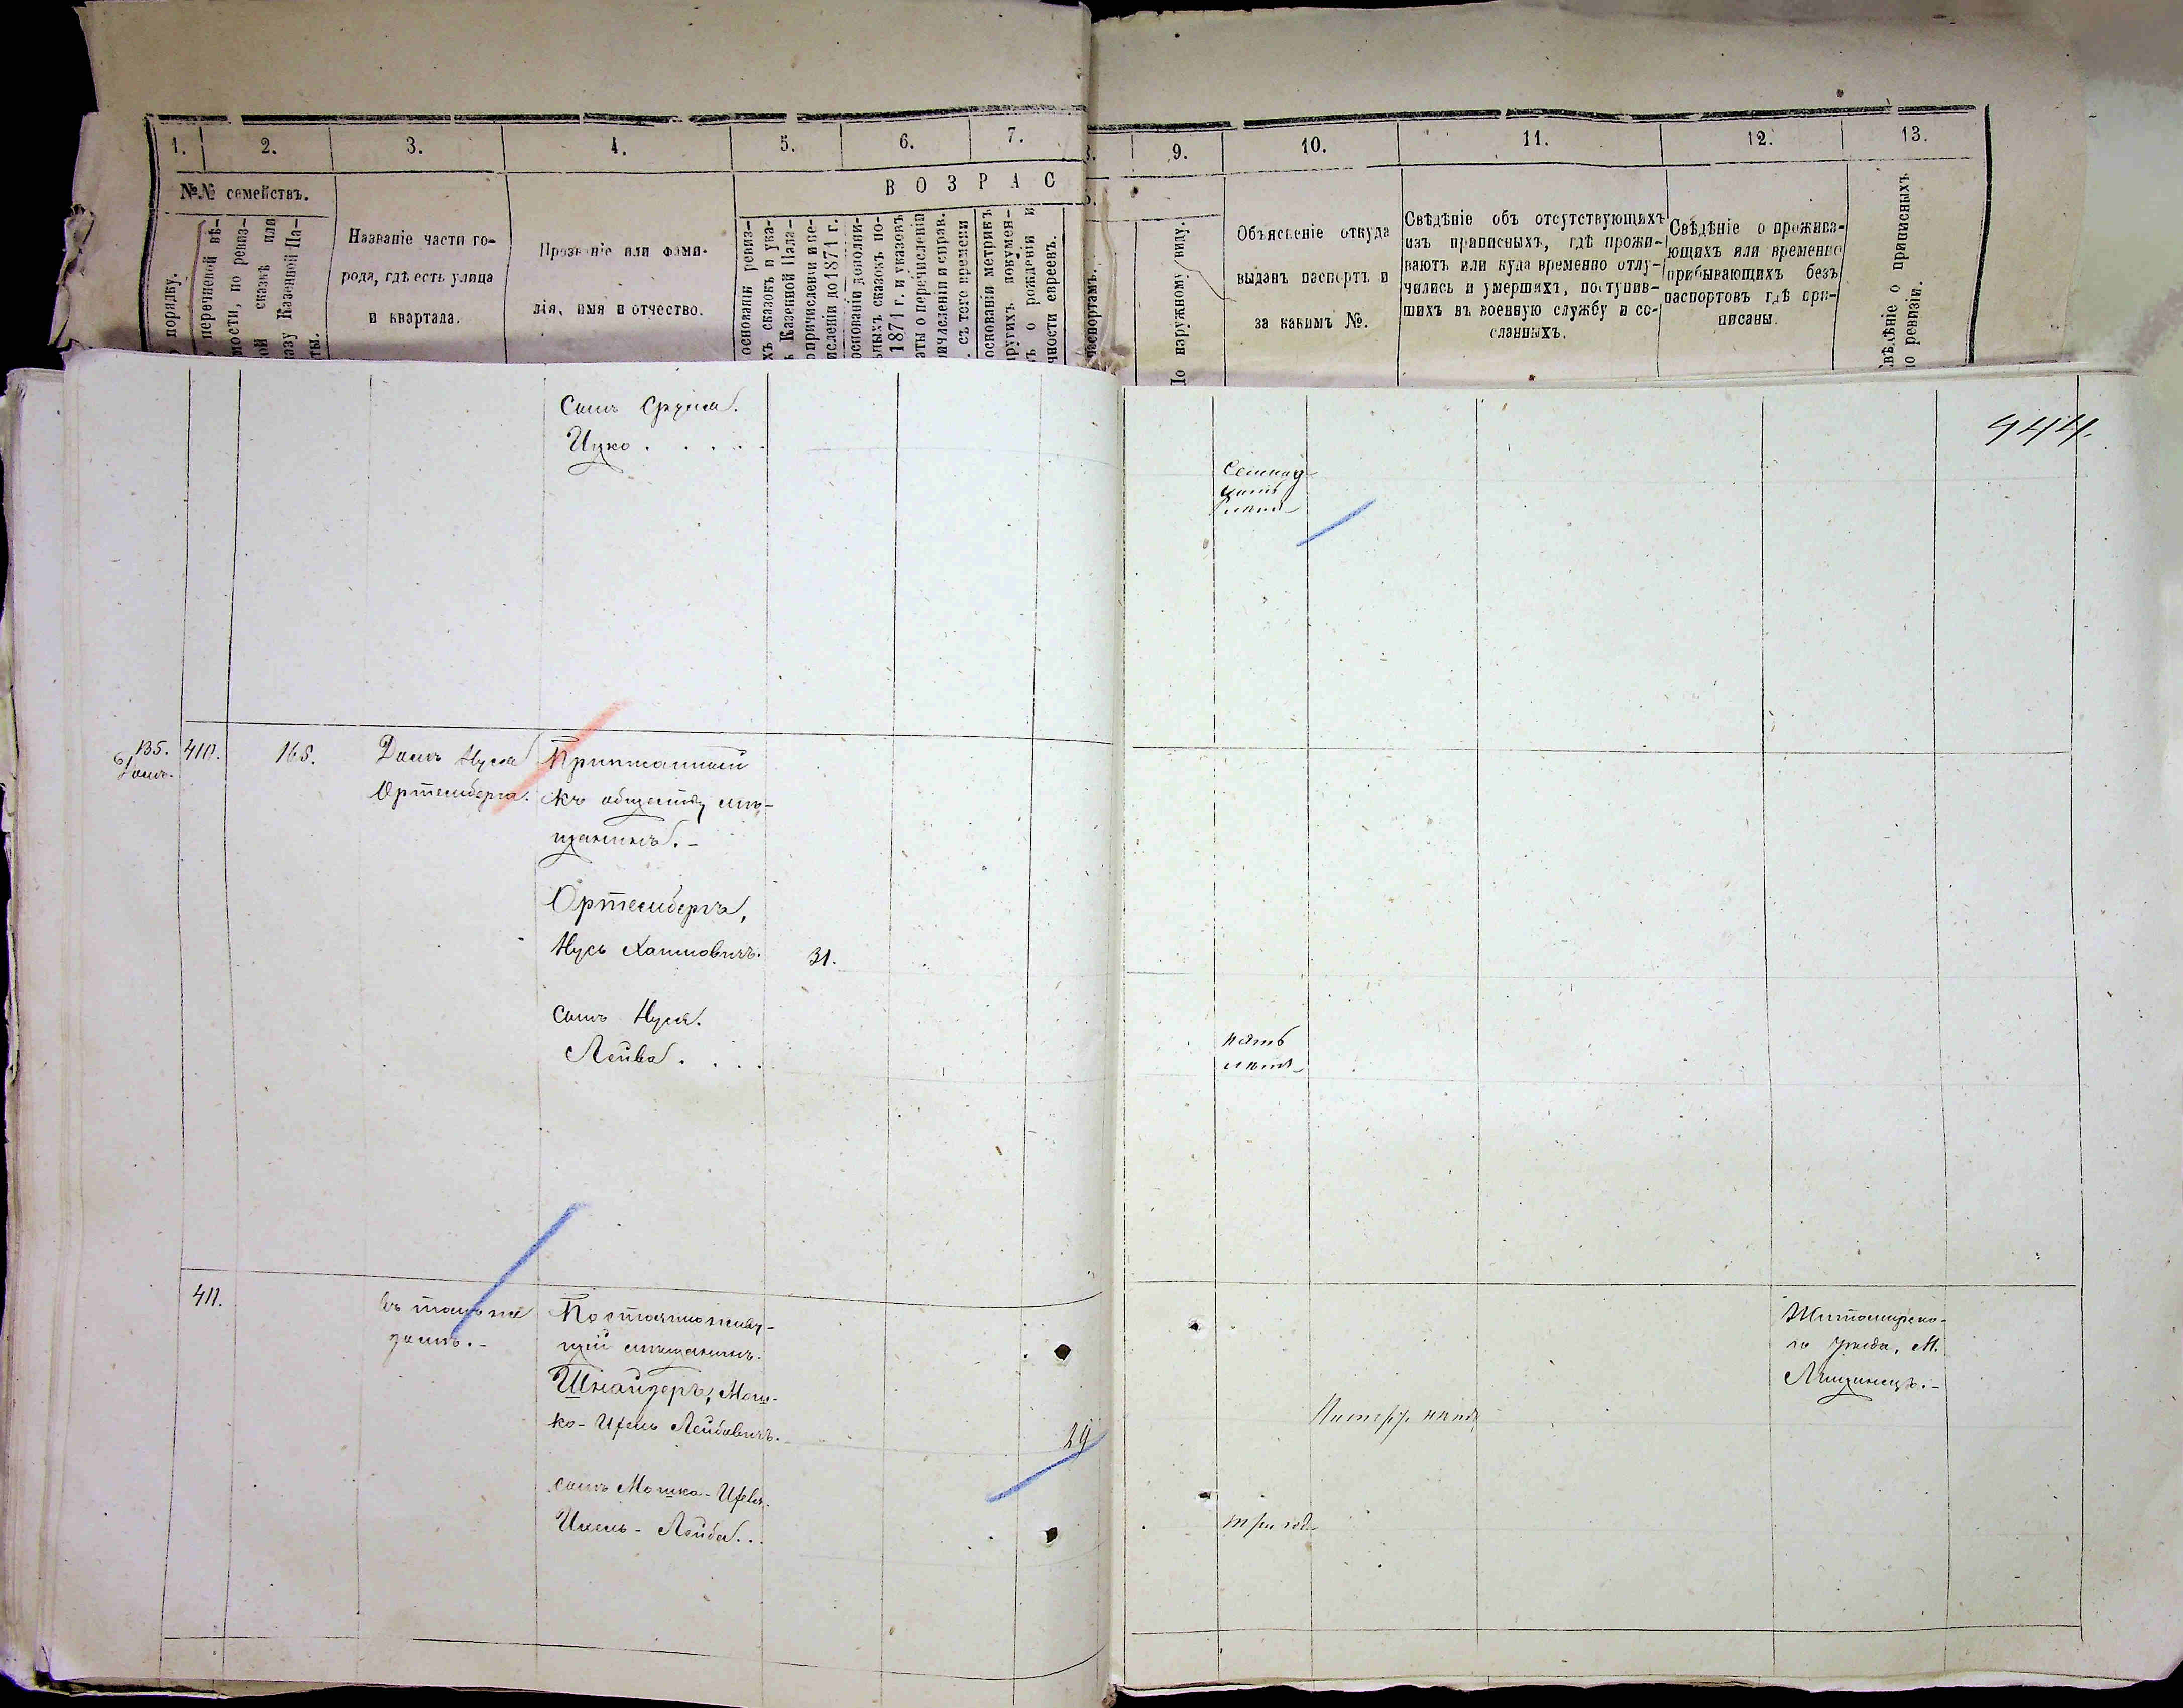 1. 2. 3. 4. 5. 6. 7.
№№ семействъ.
ВОЗРАС
порядку.
перечневой вѣ-
мости, по ревиз-
ой сказкѣ или
азу Казенной Па-
ты.
Названіе части го-
рода, гдѣ есть улица
и квартала.
Прозваніе или фами-
лія, имя и отчество.
основаніи ревиз-
хъ сказокъ и ука-
ъ Казенной Пала-
о причисленіи и пе-
ислении до 1871 г.
основаніи дополни-
ьныхъ сказокъ по-
1871 г. и указовъ
аты о перечисленіи
ичисленіи и справ.
съ того времени
основаніи метрикъ
другихъ докумен-
ъ о рожденіи и
чности евреевъ.
9. 10. 11. 12. 13.
паспортамъ.
По наружному виду.
Объясненіе откуда
выданъ паспортъ и
за какимъ №.
Свѣдѣніе объ отсутствующихъ
изъ приписныхъ, гдѣ прожи-
ваютъ или куда временно отлу-
чились и умершихъ, поступив-
шихъ въ военную службу и со-
сланныхъ.
Свѣдѣніе о прожива-
ющихъ или временно
прибывающихъ безъ
паспортовъ гдѣ при-
писаны.
Свѣдѣніе о приписныхъ
по ревизіи.
944.
Сынъ Сруля.
Ицко . . . . .
Семнад-
цать
лѣтъ
135.
домъ.
410.
165.
Домъ Нуся
Ортенберга.
Приписанный
къ обществу мѣ-
щанинъ. -
Ортенбергъ,
Нусь Хаимовичъ.
31.
Сынъ Нуся.
Лейба . . . .
пять
лѣтъ
411.
въ томъ же
домѣ. -
Постояннoживу-
щій мѣщанинъ.
Шнайдеръ, Мош-
ко-Ицель Лейбовичъ.
29
Житомирска-
го уѣзда, М.
Лещинецъ. -
сынъ Мошка-Ицеля.
Лейба . .
три года